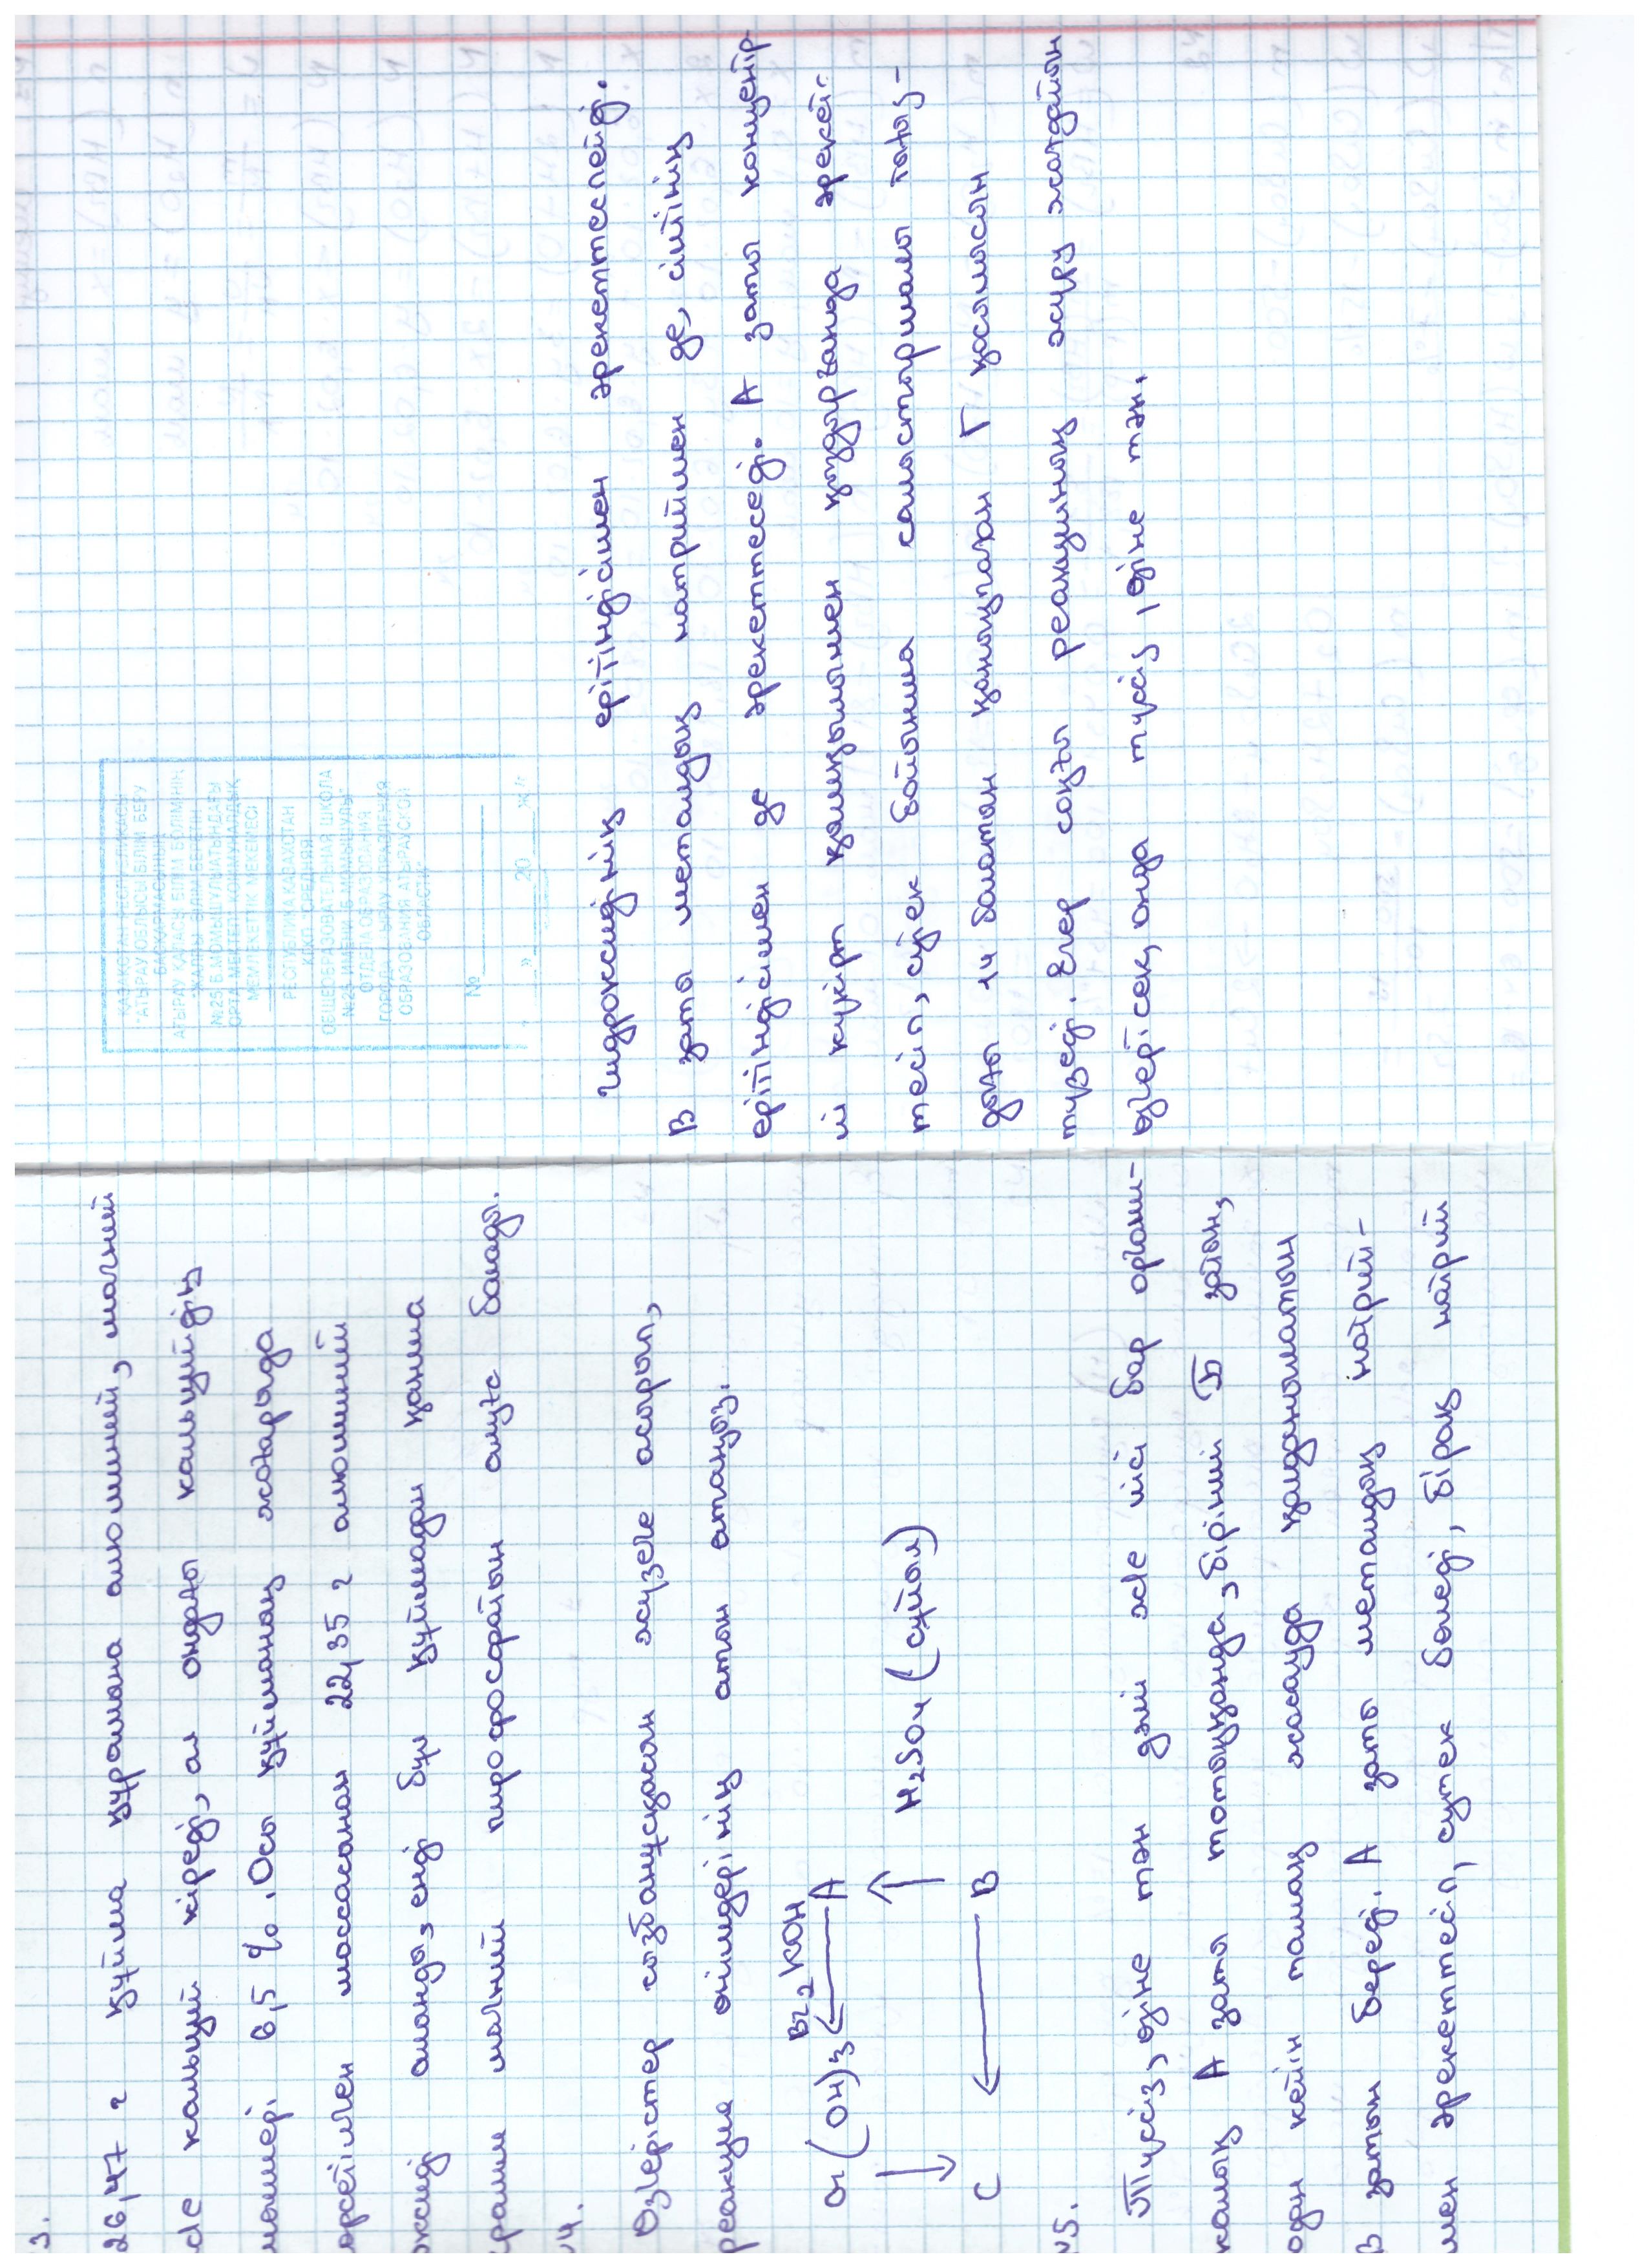 3.
26,47 г құйма құрамына алюминий, магний
және кальций кіреді, ал ондағы кальцийдің
мөлшері 6,5 %. Осы құйманың жоғарыда
көрсетілген массасынан 22,35 г алюминий
оксиді алынды, енді бұл құймадан қанша
грамм магний пирофосфатын алуға болады.
№4.
Өзгерістер созбанұсқасын жүзеге асырып,
реакция өнімдерінің атын атаңыз.
Br2 KOH
Cr(OH)3 ← A
↓ ↑ H2SO4 (сұйыл)
C ← B
№5.
Түссіз, өзіне тән дәмі және иісі бар органи-
калық А заты тотыққанда, бірінші Б затын,
одан кейін тамақ жасауда қолданылатын
В затын береді. А заты металдық натрий-
мен әрекеттесіп, сутек бөледі, бірақ натрий
гидроксидінің ерітіндісімен әрекеттеспейді.
В заты металдық натриймен де, сілтінің
ерітіндісімен де әрекеттеседі. А заты концентр-
лі күкірт қышқылымен қыздырғанда әрекет-
тесіп, сутек бойынша салыстырмалы тығыз-
дығы 14 болатын қанықпаған Г қосылысын
түзеді. Егер соңғы реакцияның жүру жағдайын
өзгертсек, онда түссіз, өзіне тән,
ҚАЗАҚСТАН РЕСПУБЛИКАСЫ
"АТЫРАУ ОБЛЫСЫ БІЛІМ БЕРУ
БАСҚАРМАСЫНЫҢ
АТЫРАУ ҚАЛАСЫ БІЛІМ БӨЛІМІНІҢ
ОРТА МЕКТЕБІ" КОММУНАЛДЫҚ
МЕМЛЕКЕТТІК МЕКЕМЕСІ
РЕСПУБЛИКА КАЗАХСТАН
ОБЩЕОБРАЗОВАТЕЛЬНАЯ ШКОЛА
ОТДЕЛА ОБРАЗОВАНИЯ
ГОРОДА АТЫРАУ УПРАВЛЕНИЯ
ОБРАЗОВАНИЯ АТЫРАУСКОЙ
ОБЛАСТИ"
№
20 ж/г